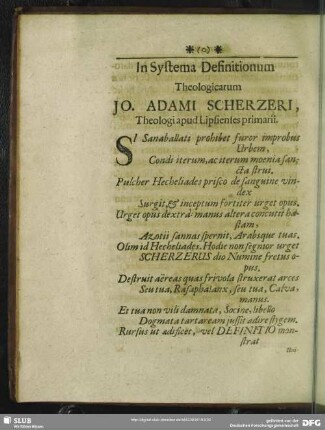 ❋ (0) ❋
In Systema Definitionum
Theologicarum
JO. ADAMI SCHERZERI,
Theologi apud Lipsienses primarii.
SI Sanaballati prohibet furor improbus
Urbem,
Condi iterum, ac iterum moenia san-
cta strui,
Pulcher Hecheliades prisco de sanguine vin-
dex
Surgit, & inceptum fortiter urget opus,
Urget opus dextrâ: manus altera concutit ha-
stam;
Azotii sannas spernit, Arabsque tuas,
Olim id Hecheliades. Hodie non segnior urget
SCHERZERUS dio Numine fretus o-
pus,
Destruit aëreas quas frivola struxerat arces
Seu tua, Rasaphalanx, seu tua, Calva,
manus.
Et tua non vili damnata, Socine, libello
Dogmata tartaream jussit adire stygem.
Rursus ut adificet, vel DEFINITIO mon-
strat
SLUB
Wir führen Wissen.
gefördert von der
Deutschen Forschungsgemeinschaft
DFG